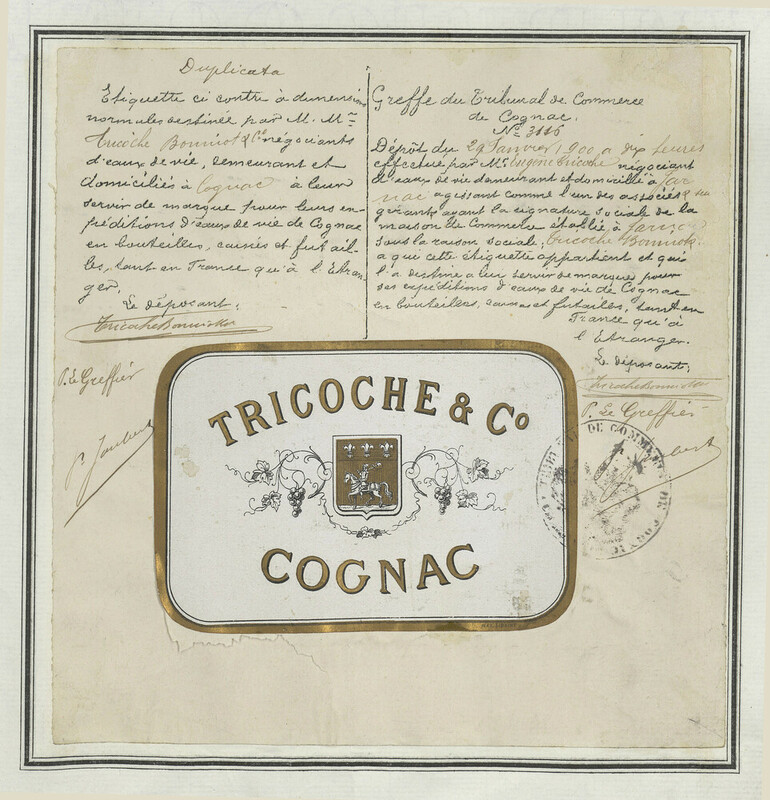 Duplicata
Etiquette ci contre à dimensions
normales destinée par M. Mrs
Tricoche Bonniot & Co négociants
d'eaux de vie, demeurant et
domiciliés à Cognac à leur
servir de marque pour leurs ex-
péditions d'eaux de vie de Cognac
en bouteilles, caisses et futail-
les, tant en France qu'à l'Etran
ger.
Le déposant:
Tricoche Bonniot & Co
P. Le Greffier
P. Joubert
Greffe du Tribunal de Commerce
de Cognac.
No 3116
Dépôt du 29 Janvier 1900 à dix heures
effectué par Mr Eugène Tricoche négociant
d'eaux de vie demeurant et domicilié à Jar
nac agissant comme l'un des associés &
gérants ayant la signature sociale de la
maison de Commerce établie à Jarnac
sous la raison sociale; Tricoche Bonniot &
a qui cette étiquette appartient et qui
l'a destine a leur servir de marque pour
ses expéditions d'eaux de vie de Cognac
en bouteilles, caisses et futailles, tant en
France qu'à
l'Etranger.
Le déposant;
Tricoche Bonniot & Co
P. Le Greffier
TRIBUNAL DE COMMERCE DE COGNAC
TRICOCHE & Co
COGNAC